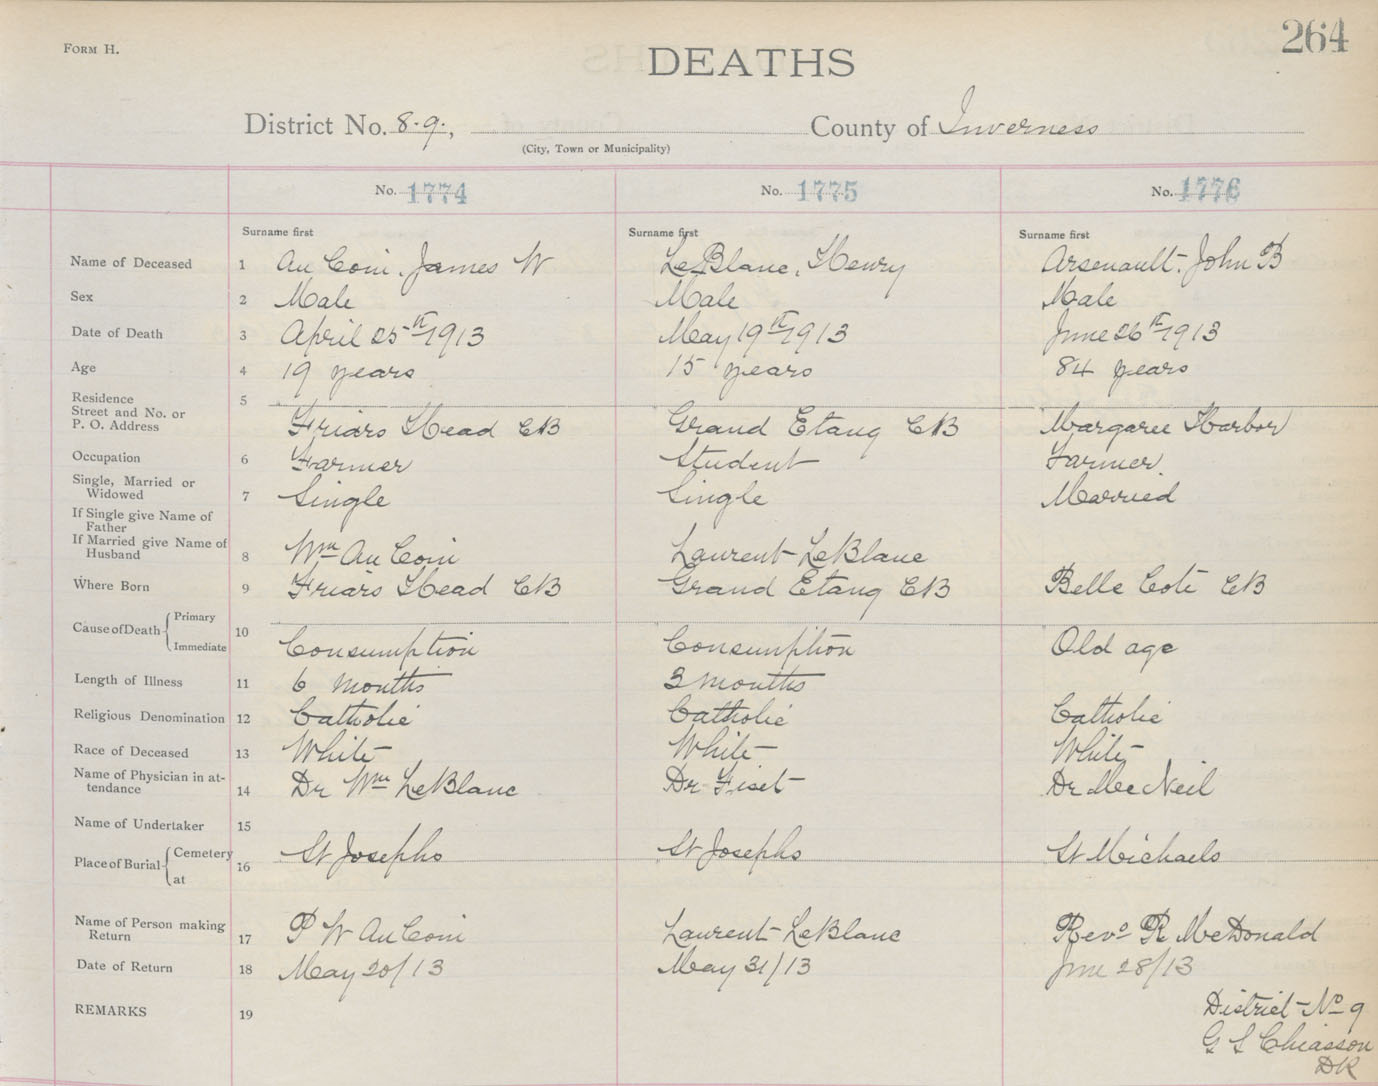 264
FORM H.
DEATHS
District No. 8.9., County of Inverness
(City, Town or Municipality)
No. 1774 No. 1775 No. 1776
Surname first Surname first Surname first
Name of Deceased 1 Au Coin, James W LeBlanc, Henry Arsenault, John B
Sex 2 Male Male Male
Date of Death 3 April 25th 1913 May 19th 1913 June 26th 1913
Age 4 19 years 15 years 84 years
Residence 5
Street and No. or
P. O. Address Friars Head CB Grand Etang CB Margaree Harbor
Occupation 6 Farmer Student Farmer
Single, Married or
Widowed 7 Single Single Married
If Single give Name of
Father
If Married give Name of
Husband 8 Wm Au Coin Laurent LeBlanc
Where Born 9 Friars Head CB Grand Etang CB Belle Cote CB
Cause of Death Primary
Immediate 10 Consumption Consumption Old age
Length of Illness 11 6 months 3 months
Religious Denomination 12 Catholic Catholic Catholic
Race of Deceased 13 White White White
Name of Physician in at-
tendance 14 Dr Wm LeBlanc Dr Fiset Dr MacNeil
Name of Undertaker 15
Place of Burial Cemetery
at 16 St Josephs St Josephs St Michaels
Name of Person making
Return 17 P W AuCoin Laurent LeBlanc Revd R McDonald
Date of Return 18 May 20/13 May 31/13 June 28/13
REMARKS 19 District No 9
G S Chiasson
DR